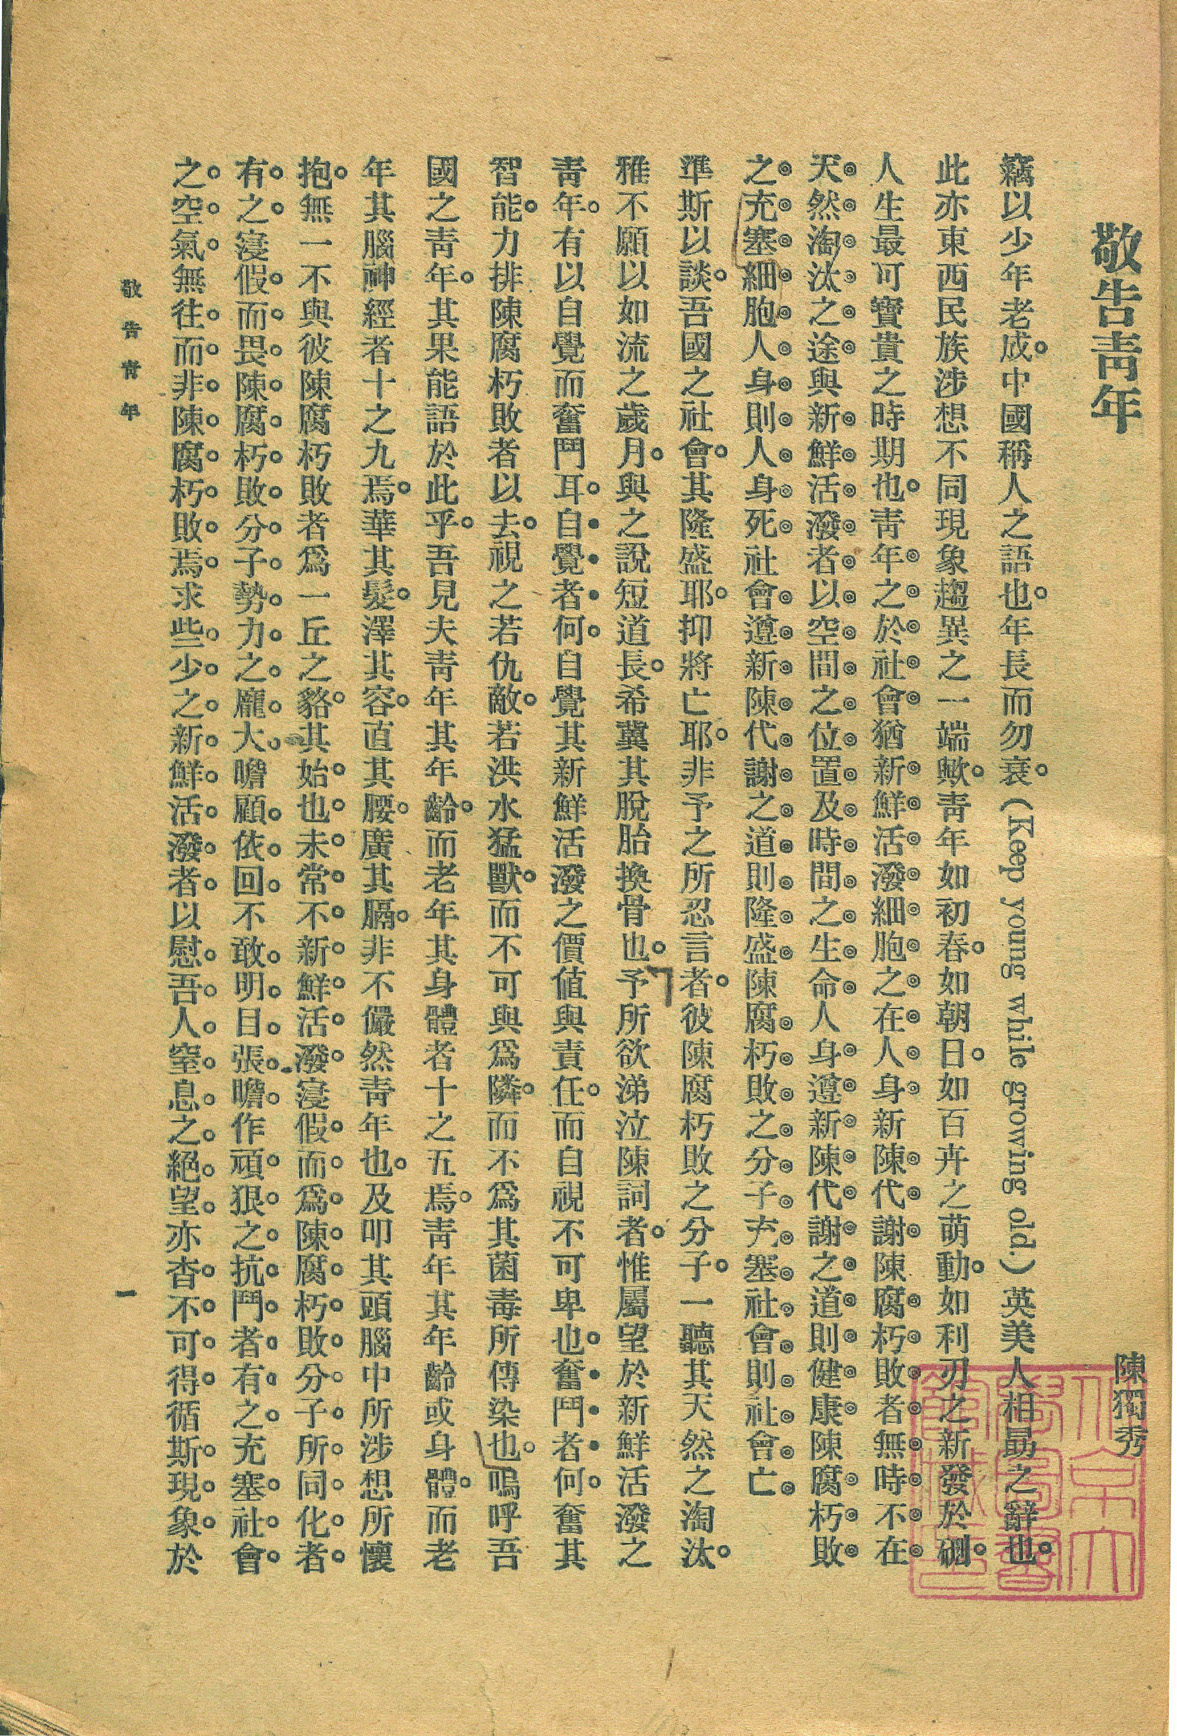 敬告靑年
陳獨秀
竊以少年老成。中國稱人之語也。年長而勿衰。(Keep young while growing old.)英美人相勗之辭也。
此亦東西民族涉想不同現象趨異之一端歟。靑年如初春。如朝日。如百卉之萌動。如利刃之新發於硎。
人生最可寶貴之時期也。靑年之於社會猶新鮮活潑細胞之在人身新陳代謝陳腐朽敗者無時不在
天然淘汰之途與新鮮活潑者以空間之位置及時間之生命人身遵新陳代謝之道則健康陳腐朽敗
之充塞細胞人身則人身死社會遵新陳代謝之道則隆盛陳腐朽敗之分子充塞社會則社會亡
準斯以談。吾國之社會。其隆盛耶。抑將亡耶。非予之所忍言者。彼陳腐朽敗之分子。一聽其天然之淘汰。
雅不願以如流之歲月。與之說短道長。希冀其脫胎換骨也。予所欲涕泣陳詞者。惟屬望於新鮮活潑之
靑年。有以自覺而奮鬥耳。自覺者何。自覺其新鮮活潑之價値與責任。而自視不可卑也。奮鬥者何。奮其
智能。力排陳腐朽敗者以去。視之若仇敵。若洪水猛獸。而不可與爲隣。而不爲其菌毒所傳染也。嗚呼吾
國之靑年。其果能語於此乎。吾見夫靑年其年齡。而老年其身體者十之五焉。靑年其年齡或身體。而老
年其腦神經者十之九焉。華其髮。澤其容。直其腰。廣其膈。非不儼然靑年也。及叩其頭腦中所涉想所懷
抱。無一不與彼陳腐朽敗者爲一丘之貉。其始也未常不新鮮活潑寖假而爲陳腐朽敗分子所同化者
有之寖假而畏陳腐朽敗分子勢力之龐大瞻顧依回不敢明目張瞻作頑狠之抗鬥者有之充塞社會
之空氣無往而非陳腐朽敗焉求些少之新鮮活潑者以慰吾人窒息之絕望亦杳不可得循斯現象於
敬告靑年
一